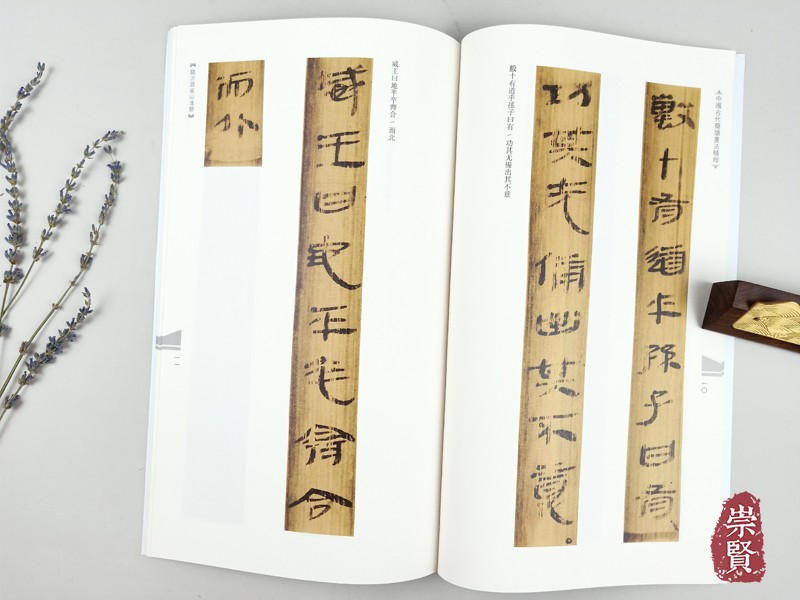 中國古代簡牘書法精粹
毄十有道乎孫子曰有
功其无備出其不意
毄十有道乎孫子曰有/功其无備出其不意
一〇
威王曰地平卒齊合/而北
威王曰地平卒齊合
而北
【臨沂銀雀山漢簡】
一一
崇賢